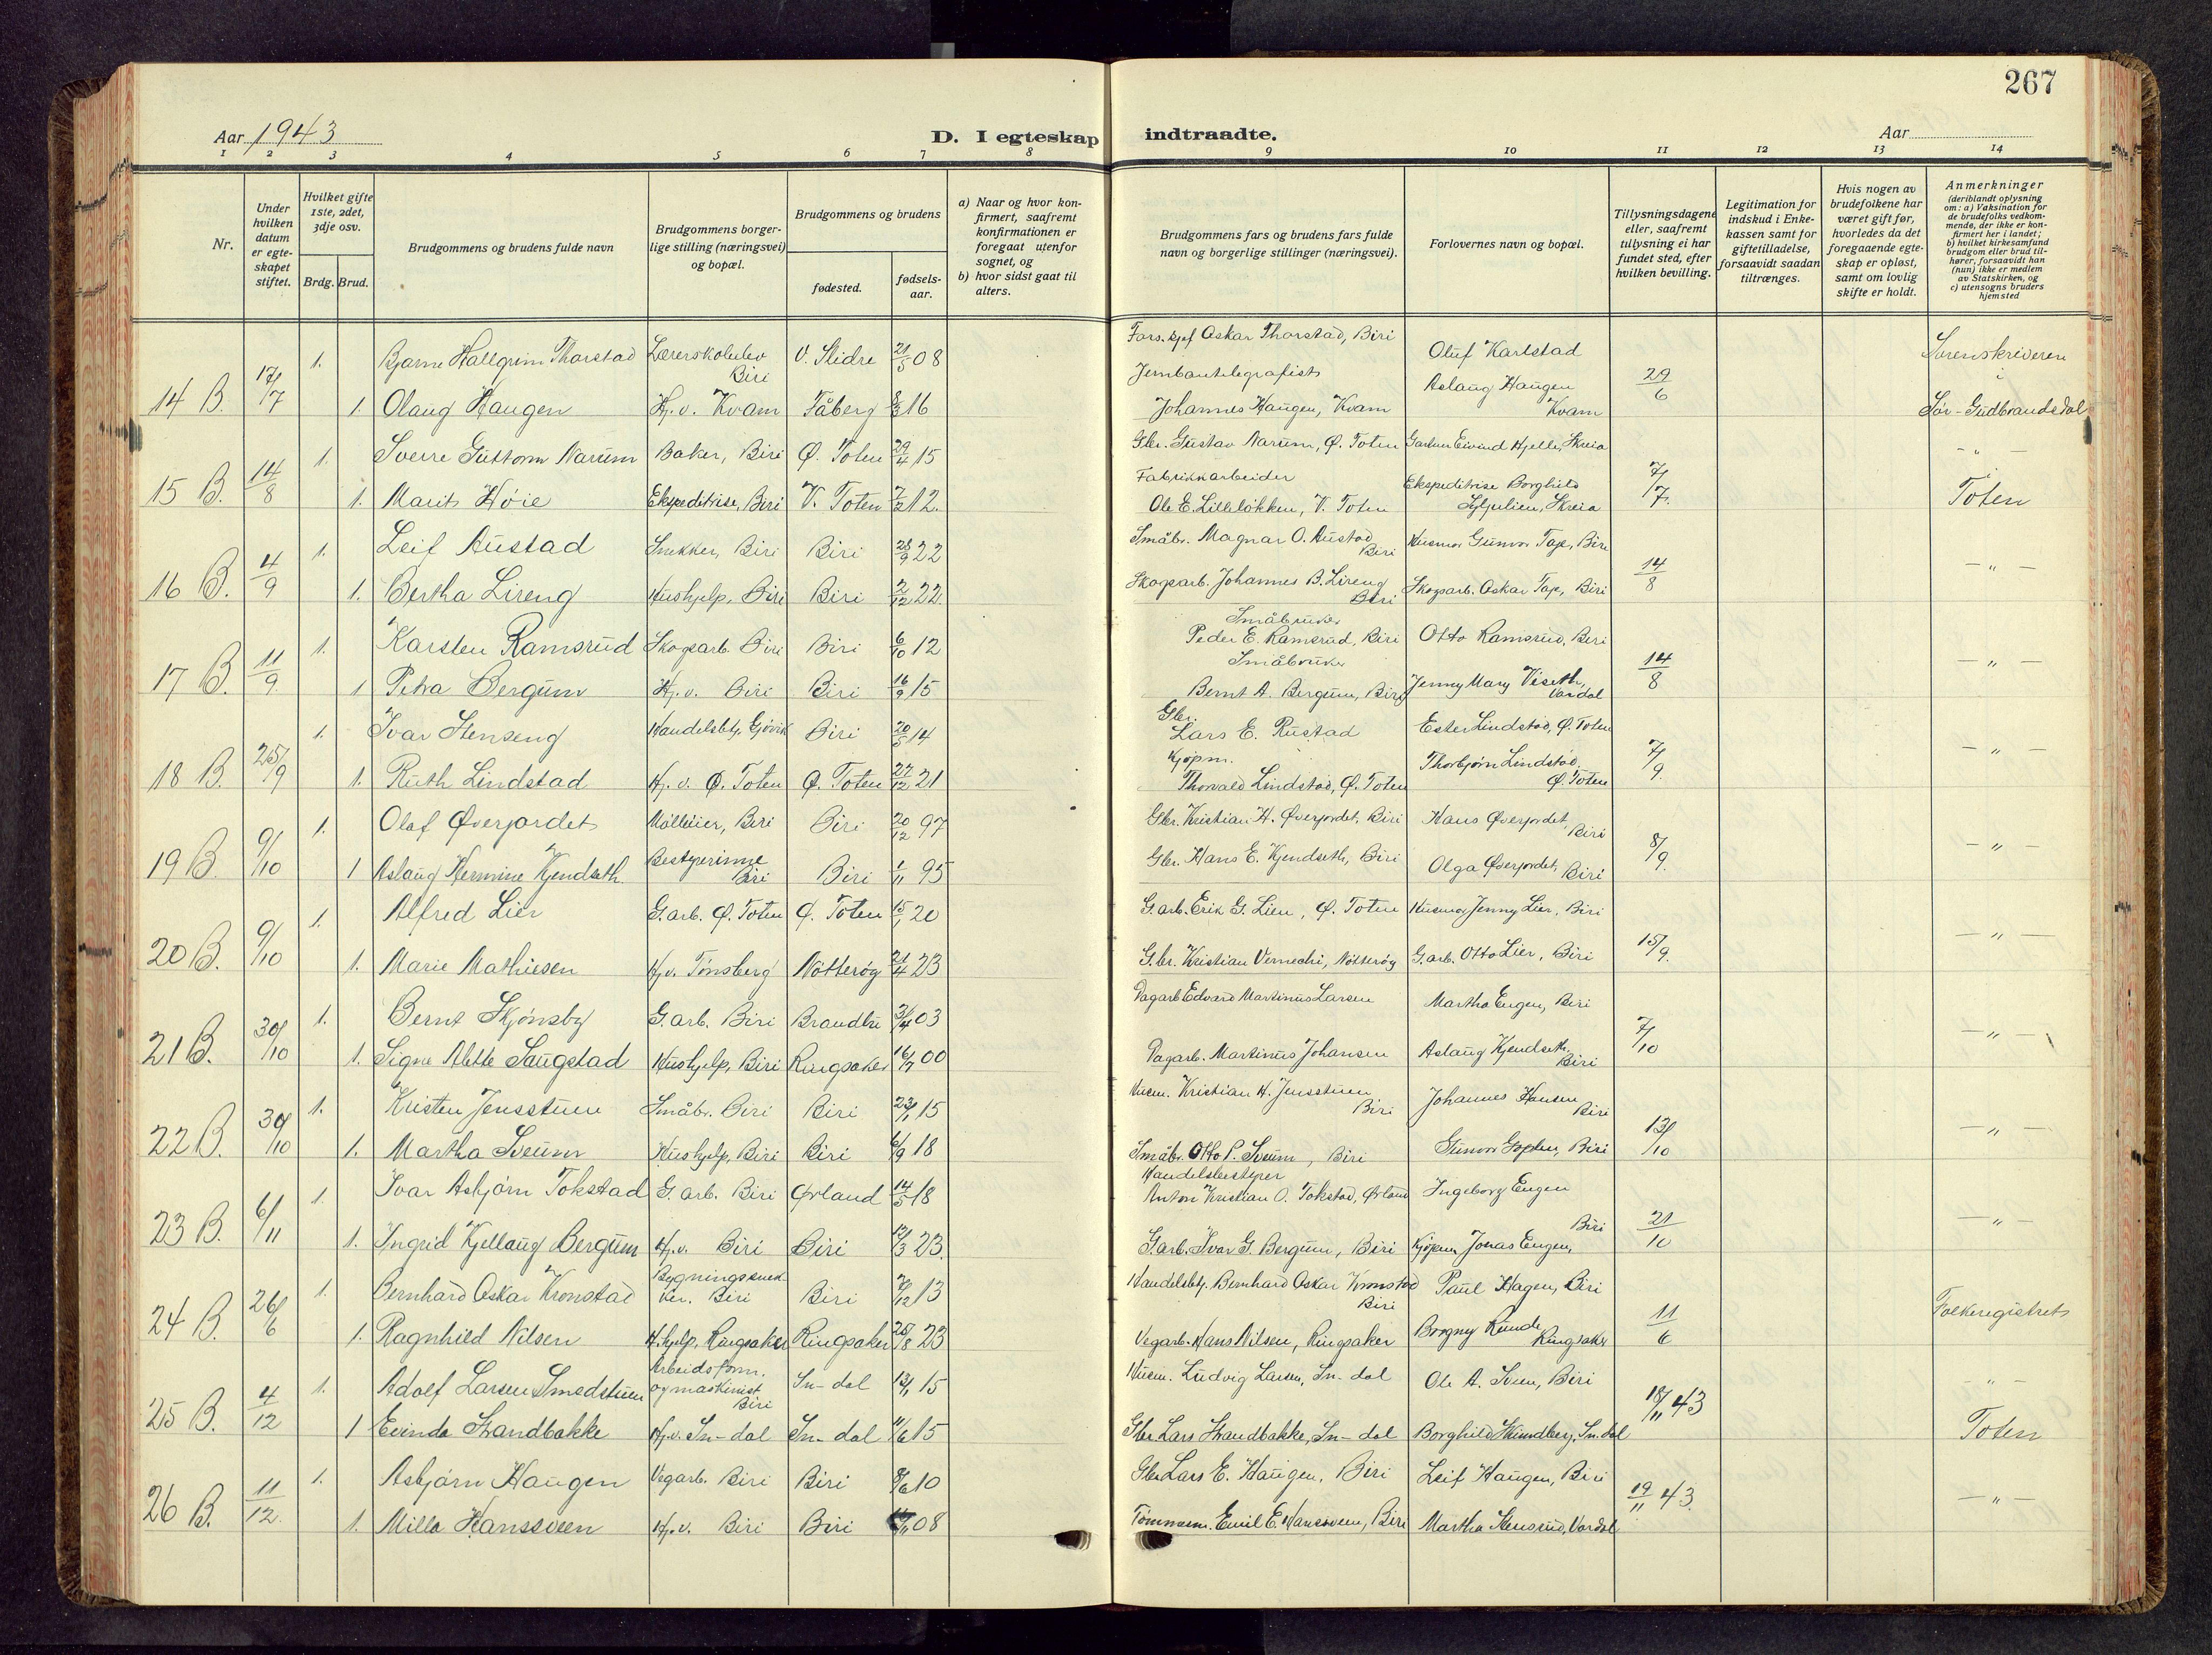 267
Aar 1943
D. I egteskap indtraadte.
Aar
1 2 3 4 5 6 7 8 9 10 11 12 13 14
Nr.
Under hvilken datum er egteskapet stiftet.
Hvilket gifte 1ste, 2det, 3dje osv.
Brdg. Brud.
Brudgommens og brudens fulde navn
Brudgommens borgerlige stilling (næringsvei) og bopæl.
Brudgommens og brudens
fødested.
fødselsaar.
a) Naar og hvor konfirmert, saafremt konfirmationen er foregaat utenfor sognet, og
b) hvor sidst gaat til alters.
Brudgommens fars og brudens fars fulde navn og borgerlige stillinger (næringsvei).
Forlovernes navn og bopæl.
Tillysningsdagene eller, saafremt tillysning ei har fundet sted, efter hvilken bevilling.
Legitimation for indskud i Enkekassen samt for giftetilladelse, forsaavidt saadan tiltrænges.
Hvis nogen av brudefolkene har været gift før, hvorledes da det foregaaende egteskap er opløst, samt om lovlig skifte er holdt.
Anmerkninger (deriblandt oplysning om: a) Vaksination for de brudefolks vedkommende, der ikke er konfirmert her i landet; b) hvilket kirkesamfund brudgom eller brud tilhører, forsaavidt han (hun) ikke er medlem av Statskirken, og c) utensogns bruders hjemsted
14 B. 17/7 1. Bjarne Hallgrim Thorstad Lærerskoleelev Biri V. Slidre 21/5 08 Oskar Thorstad, Biri Oluf Karlstad 29/6 Sorenskriveren i
1. Olaug Haugen Hj. v. Kvam Fåberg 16 Jernbanetelegrafist Johannes Haugen, Kvam Aslaug Haugen Kvam Sør-Gudbrandsdal
15 B. 14/8 1. Sverre Guttorm Narum Baker, Biri Ø. Toten 29/4 15 Gbr. Gustav Narum, Ø. Toten Gartner Eivind Hjelle, Skreia 7/7 - " -
1. Marit Høie Ekspeditrise, Biri V. Toten 12. Fabrikkarbeider Ole E. Lilleløkken, V. Toten Ekspeditrise Borghild Skreia Toten
16 B. 4/9 1. Leif Austad Snekker, Biri Biri 28/9 22 Småbr. Magnar O. Austad Biri Husmor Gunvor Tax, Biri 14/8 - " -
1. Bertha Lireng Hushjelp, Biri Biri 2/12 22. Skogsarb. Johannes B. Lireng Biri Skogsarb. Oskar Tax, Biri
17 B. 11/9 1. Karsten Ramsrud Skogsarb. Biri Biri 6/10 12 Småbruker Peder E. Ramsrud, Biri Otto Ramsrud, Biri 14/8 - " -
1 Petra Bergum Hj. v. Biri Biri 16/9 15 Småbruker Bernt A. Bergum, Biri Jenny Mary Viseth, Vardal
18 B. 25/9 1. Ivar Stenseng Handelsbtj. Gjøvik Biri 20/5 14 Gbr. Lars E. Rustad Ester Lindstad, Ø. Toten 7/9. - " -
1. Ruth Lindstad Hj. v. Ø. Toten Ø. Toten 27/12 21 Kjøpm. Thorvald Lindstad, Ø. Toten Thorbjørn Lindstad, Ø. Toten
19 B. 9/10 1. Olaf Øverjordet Møllеeier, Biri Biri 20/12 97 Gbr. Kristian H. Øverjordet, Biri Hans Øverjordet, Biri 8/9. - " -
1 Aslaug Hermine Kjendseth. Bestyrerinne Biri Biri 1/11 95 Gbr. Hans E. Kjendseth, Biri Olga Øverjordet, Biri
20 B. 9/10 1. Alfred Lier G. arb. Ø. Toten Ø. Toten 15/1 20 G. arb. Erik G. Lien, Ø. Toten Husmor Jenny Lier, Biri 15/9. - " -
1. Marie Mathiesen Hj. v. Tønsberg Nøtterøy 21/4 23 G. br. Kristian Nøtterøy G. arb. Otto Lier, Biri
21 B. 30/10 1. Bernt Skjønsby G. arb. Biri Brandbu 03 Dagarb. Edvard Martinus Larsen Martha Engen, Biri 7/10 - " -
1. Signe Alette Saugstad Hushjelp, Biri Ringsaker 16/7 00 Dagarb. Martinus Johansen Aslaug Kjendseth, Biri
22 B. 30/10 1. Kristen Jensstuen Småbr. Biri Biri 23/1 15 Kristian H. Jensstuen Biri Johannes Hansen Biri 13/10 - " -
1. Martha Sveum Hushjelp, Biri Biri 6/9 18 Småbr. Otto P. Sveum, Biri Gunvor Biri
23 B. 6/11 1. Ivar Asbjørn Tokstad G. arb. Biri Ørland 14/5 18 Handelsbestyrer Anton Kristian O. Tokstad, Ørland Ingeborg Engen Biri 21/10 - " -
1. Ingrid Kjellaug Bergum Hj. v. Biri Biri 23. G. arb. Ivar G. Bergum, Biri Kjøpm. Jonas Engen,
24 B. 26/6 1. Bernhard Oskar Kronstad Bygningssnekker. Biri Biri 13 Handelsbtj. Bernhard Oskar Kronstad Biri Paul Hagen, Biri 11/6 Folkeregistret
1. Ragnhild Nilsen H. hjelp, Ringsaker Ringsaker 23 Vegarb. Hans Nilsen, Ringsaker Borgny Runde Ringsaker
25 B. 4/12 1. Adolf Larsen Smedstuen Arbeidsform. og maskinist Biri Sn-dal 15 Ludvig Larsen, Sn-dal Ole A. Svien, Biri 18/11 43 - " -
1 Evinda Strandbakke Hj. v. Sn-dal Sn-dal 15 Gbr Lars Strandbakke, Sn-dal Borghild Sn. dal Toten
26 B. 11/12. 1. Asbjørn Haugen Vegarb. Biri Biri 10 Gbr Lars E. Haugen, Biri Leif Haugen, Biri 19/11 43. - " -
1. Milla Hanssveen Hj. v. Biri Biri 08 Tømmerm. Emil E. Hanssveen, Biri Martha Stensrud, Vardal